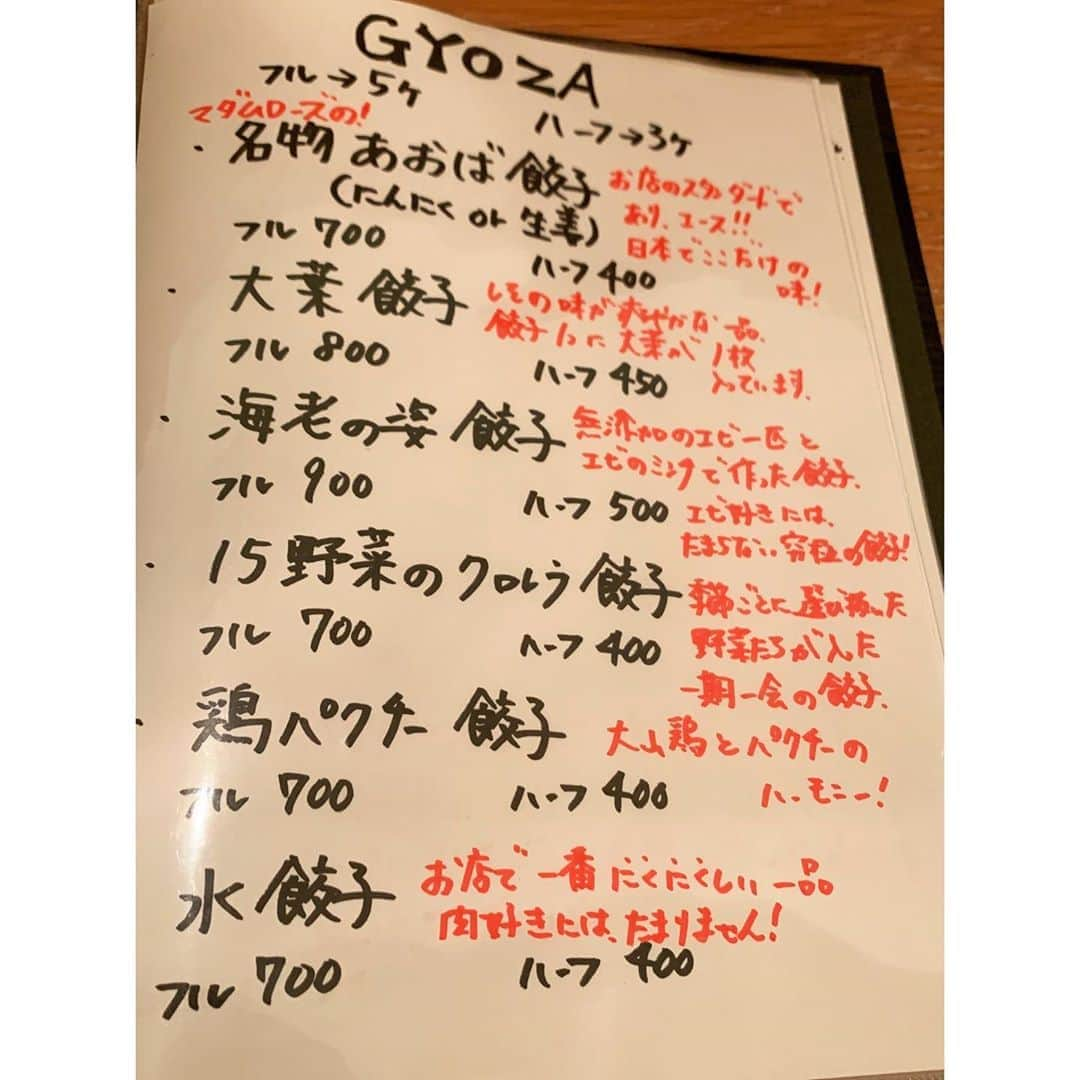 GYOZA
フル→5ケ
ハーフ→3ケ
マダムローズの!
・名物 あおば 餃子
(にんにく or 生姜)
お店のスタンダードで
あり、エース!!
日本でここだけの
味!
フル 700
ハーフ 400
・大葉 餃子
しその味が爽やかな一品。
餃子1つに大葉が1枚
入っています。
フル 800
ハーフ 450
・海老の姿 餃子
無添加のエビ一匹と
エビのミンクで作った餃子。
エビ好きには、
たまらない究極の餃子!
フル 900
ハーフ 500
・15野菜のクロレラ 餃子
季節ごとに選び抜いた
野菜たちが入った
一期一会の餃子。
フル 700
ハーフ 400
・鶏パクチー 餃子
大山鶏とパクチーの
ハーモニー!
フル 700
ハーフ 400
水 餃子
お店で一番にくにくしい一品
肉好きには、たまりません!
フル 700
ハーフ 400